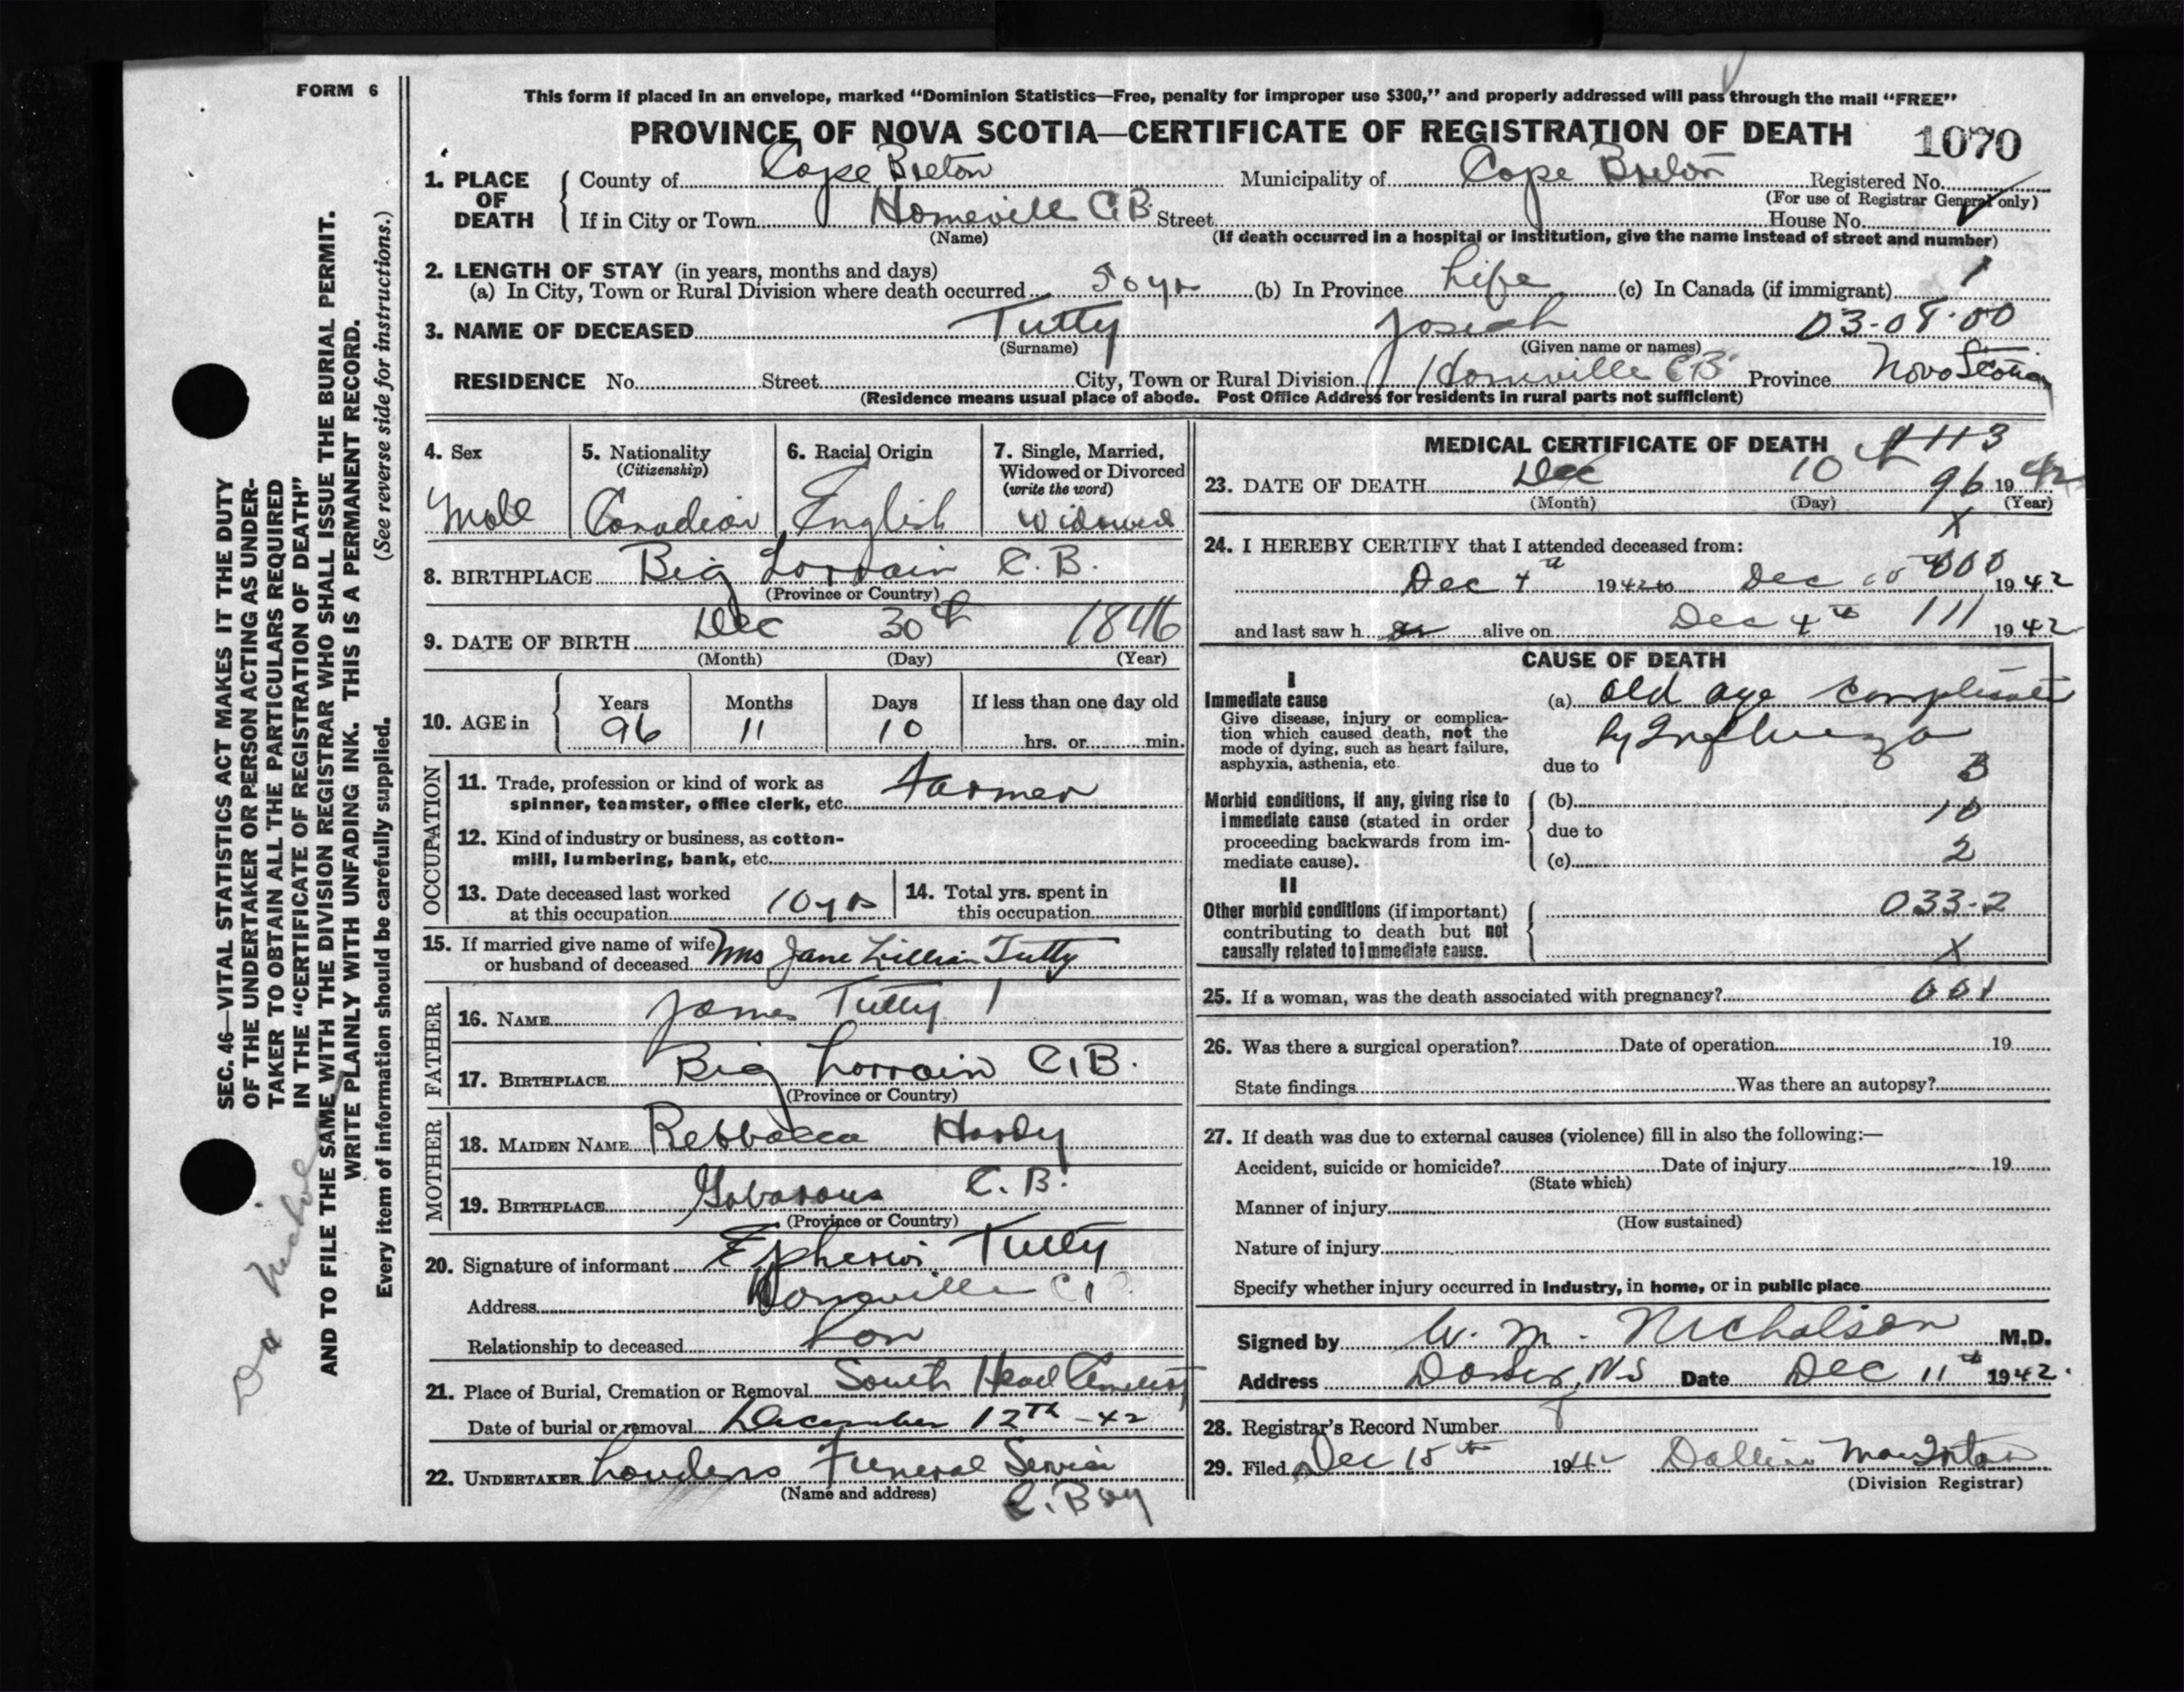 FORM 6
This form if placed in an envelope, marked "Dominion Statistics—Free, penalty for improper use $300," and properly addressed will pass through the mail "FREE"
PROVINCE OF NOVA SCOTIA—CERTIFICATE OF REGISTRATION OF DEATH 1070
1. PLACE OF DEATH County of Cape Breton Municipality of Cape Breton Registered No.
(For use of Registrar General only)
If in City or Town Homeville C.B. Street House No.
(Name) (If death occurred in a hospital or institution, give the name instead of street and number)
2. LENGTH OF STAY (in years, months and days)
(a) In City, Town or Rural Division where death occurred 50 yrs (b) In Province Life (c) In Canada (if immigrant) 1
3. NAME OF DECEASED Tutty Josiah 03-08-00
(Surname) (Given name or names)
RESIDENCE No. Street City, Town or Rural Division Homeville C B Province Nova Scotia
(Residence means usual place of abode. Post Office Address for residents in rural parts not sufficient)
4. Sex
Male
5. Nationality
(Citizenship)
Canadian
6. Racial Origin
English
7. Single, Married,
Widowed or Divorced
(write the word)
Widowed
8. BIRTHPLACE Big Lorrain C.B.
(Province or Country)
9. DATE OF BIRTH Dec 30th 1846
(Month) (Day) (Year)
10. AGE in Years Months Days If less than one day old
96 11 10 hrs. or min.
OCCUPATION
11. Trade, profession or kind of work as
spinner, teamster, office clerk, etc. Farmer
12. Kind of industry or business, as cotton-
mill, lumbering, bank, etc.
13. Date deceased last worked
at this occupation 10 yrs
14. Total yrs. spent in
this occupation
15. If married give name of wife
or husband of deceased Mrs Jane Lillian Tutty
FATHER
16. NAME James Tutty 1
17. BIRTHPLACE Big Lorrain C.B.
(Province or Country)
MOTHER
18. MAIDEN NAME Rebbacca Hardy
19. BIRTHPLACE Gabarous C.B.
(Province or Country)
20. Signature of informant Tutty
Address Homeville C
Relationship to deceased Son
21. Place of Burial, Cremation or Removal South Head Cemetery
Date of burial or removal December 12TH - 42
22. UNDERTAKER Loudens Funeral Service
(Name and address) G. Bay
MEDICAL CERTIFICATE OF DEATH 113
23. DATE OF DEATH Dec 10th 96 1942
(Month) (Day) (Year)
X
24. I HEREBY CERTIFY that I attended deceased from:
Dec 4th 1942 to Dec 10 000 1942
and last saw h alive on Dec 4th 111 1942
CAUSE OF DEATH
I
Immediate cause
Give disease, injury or complica-
tion which caused death, not the
mode of dying, such as heart failure,
asphyxia, asthenia, etc.
(a) old age complicated
by Influenza
due to 3
Morbid conditions, if any, giving rise to
immediate cause (stated in order
proceeding backwards from im-
mediate cause).
(b)
due to 10
(c) 2
II
Other morbid conditions (if important)
contributing to death but not
causally related to immediate cause.
033-2
X
25. If a woman, was the death associated with pregnancy? 001
26. Was there a surgical operation? Date of operation 19
State findings Was there an autopsy?
27. If death was due to external causes (violence) fill in also the following:—
Accident, suicide or homicide? Date of injury 19
(State which)
Manner of injury
(How sustained)
Nature of injury
Specify whether injury occurred in industry, in home, or in public place
Signed by W. M. Nicholson M.D.
Address N S Date Dec 11th 1942.
28. Registrar's Record Number 8
29. Filed Dec 15th 1942
(Division Registrar)
SEC. 46—VITAL STATISTICS ACT MAKES IT THE DUTY
OF THE UNDERTAKER OR PERSON ACTING AS UNDER-
TAKER TO OBTAIN ALL THE PARTICULARS REQUIRED
IN THE "CERTIFICATE OF REGISTRATION OF DEATH"
AND TO FILE THE SAME WITH THE DIVISION REGISTRAR WHO SHALL ISSUE THE BURIAL PERMIT.
WRITE PLAINLY WITH UNFADING INK. THIS IS A PERMANENT RECORD.
Every item of information should be carefully supplied. (See reverse side for instructions.)